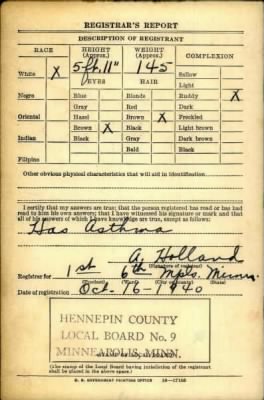 REGISTRAR'S REPORT
DESCRIPTION OF REGISTRANT
RACE HEIGHT (Approx.) WEIGHT (Approx.) COMPLEXION
White X 5 ft. 11" 145 Sallow
EYES HAIR Light
Negro Blue Blonde Ruddy X
Gray Red Dark
Oriental Hazel Brown X Freckled
Brown X Black Light brown
Indian Black Gray Dark brown
Bald Black
Filipino
Other obvious physical characteristics that will aid in identification
I certify that my answers are true; that the person registered has read or has had
read to him his own answers; that I have witnessed his signature or mark and that
all of his answers of which I have knowledge are true, except as follows:
Has Asthma
A Holland
(Signature of registrar)
Registrar for 1st 6th Mpls. Minn.
(Precinct) (Ward) (City or county) (State)
Date of registration Oct. 16-1940
HENNEPIN COUNTY
LOCAL BOARD No. 9
MINNEAPOLIS, MINN.
(The stamp of the Local Board having jurisdiction of the registrant
shall be placed in the above space.)
U. S. GOVERNMENT PRINTING OFFICE 16-17105